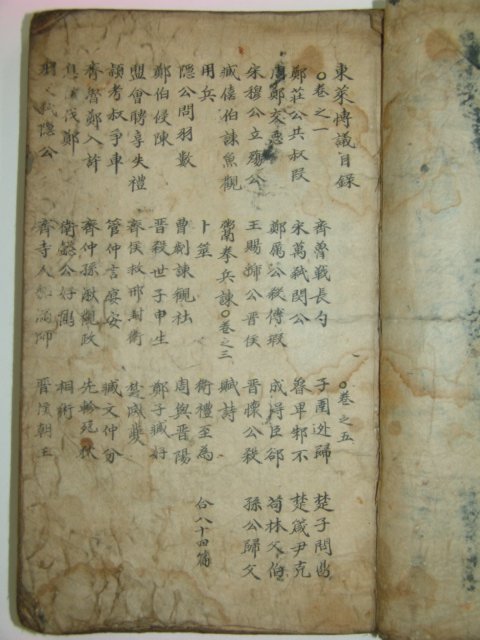 東萊博議目錄
○卷之一
鄭莊公共叔段
周鄭交惡
宋穆公立殤公
臧僖伯諫魚觀
用兵
隱公問羽數
鄭伯侵陳
盟會聘享失禮
穎考叔爭車
齊魯鄭入許
息侯伐鄭
羽父弒隱公
齊魯戰長勺
宋萬弒閔公
鄭厲公殺傅瑕
王賜虢公晉侯
鬻拳兵諫○卷之三
卜筮
曹劌諫觀社
晉殺世子申生
齊侯救邢封衛
管仲言宴安
齊仲孫湫觀政
衛懿公好鶴
齊寺人貂漏師
○卷之五
子圉逃歸
魯卑邾不
成得臣郤
晉懷公殺
賦詩
衛禮至為
周與晉陽
鄭子臧好
楚滅夔
臧文仲分
先軫死狄
相術
晉侯朝王
楚子問鼎
楚箴尹克
荀林父伯
孫公歸父
合八十四篇